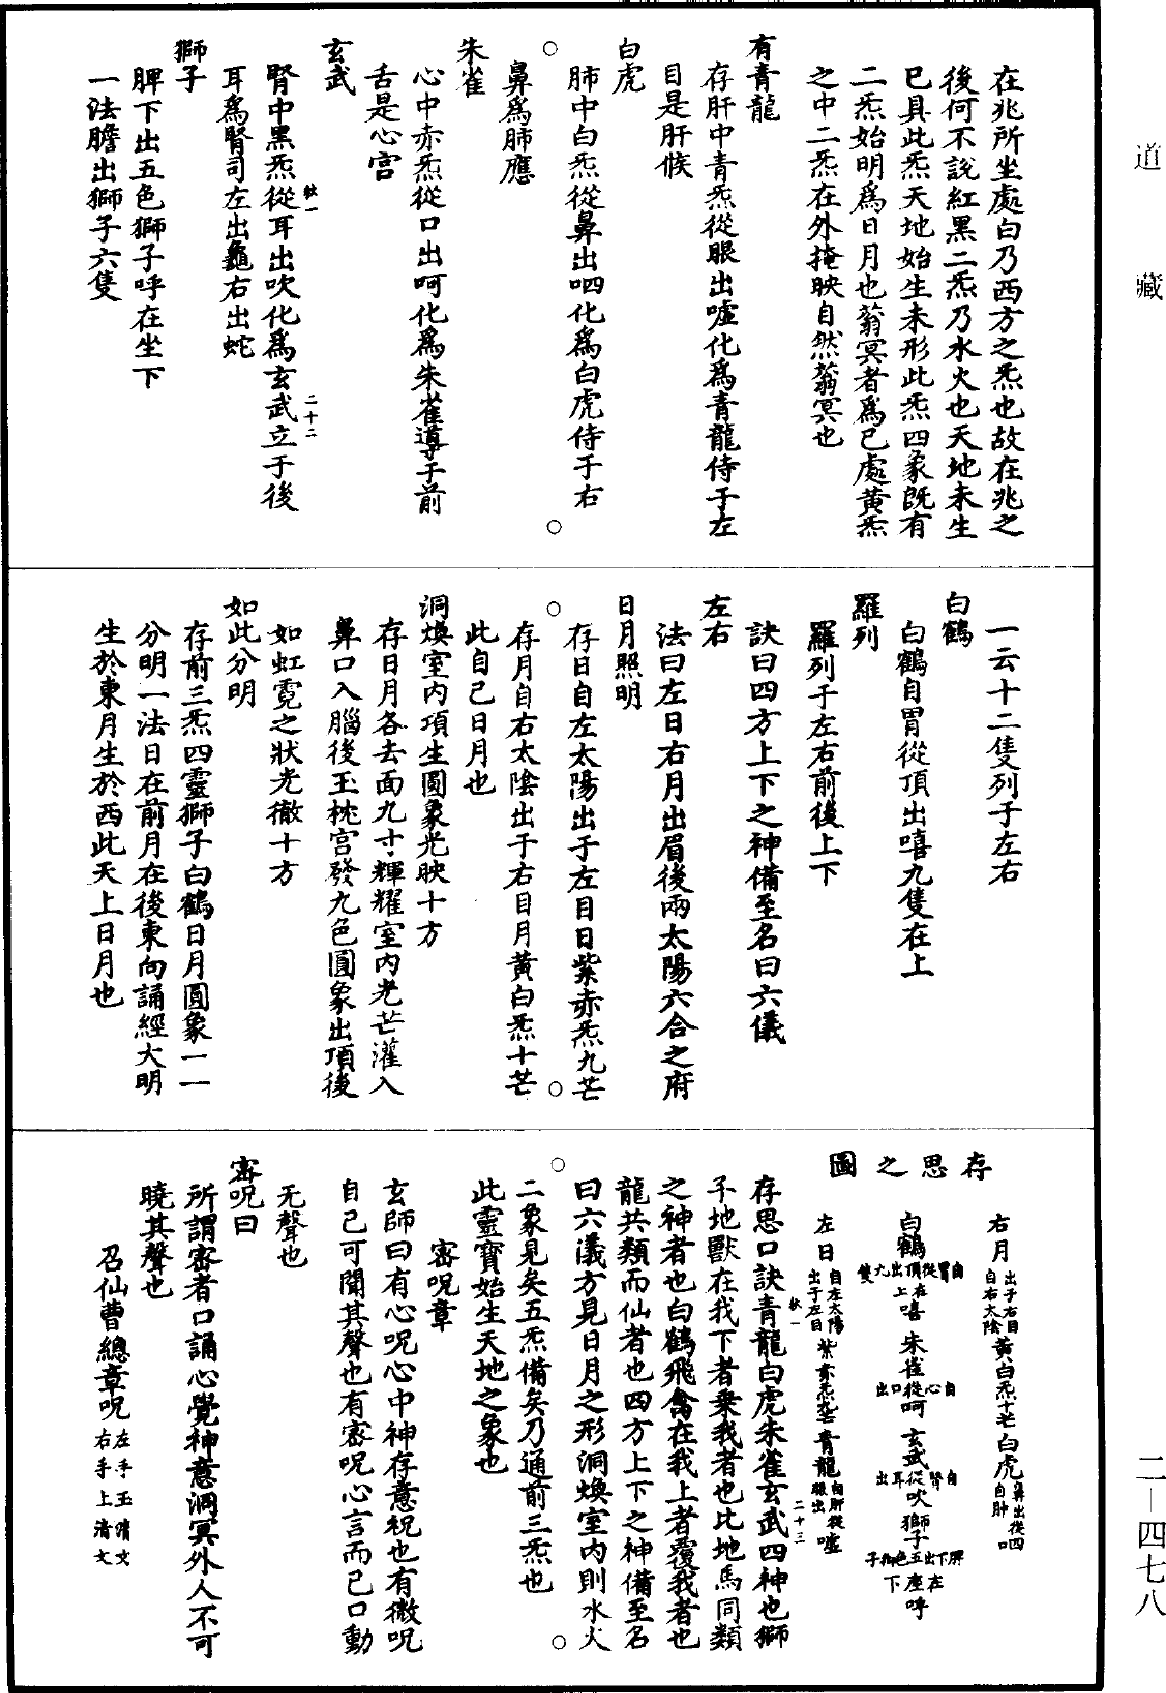 道藏
二－四七八
在兆所坐處白乃西方之炁也故在兆之
後何不說紅黑二炁乃水火也天地未生
已具此炁天地始生未形此炁四象既有
二炁始明為日月也蓊冥者為已處黃炁
之中二炁在外掩映自然蓊冥也
有青龍
存肝中青炁從眼出噓化為青龍侍于左
目是肝候
白虎
肺中白炁從鼻出呬化為白虎侍于右
鼻為肺應
朱雀
心中赤炁從口出呵化為朱雀導于前
舌是心宮
玄武
腎中黑炁從耳出吹化為玄武立于後
二十二
耳為腎司左出龜右出蛇
獅子
脾下出五色獅子呼在坐下
一法膽出獅子六隻
一云十二隻列于左右
白鶴
白鶴自胃從頂出嘻九隻在上
羅列
羅列于左右前後上下
訣曰四方上下之神備至名曰六儀
左右
法曰左日右月出眉後兩太陽六合之府
日月照明
存日自左太陽出于左目日紫赤炁九芒
存月自右太陰出于右目月黃白炁十芒
此自己日月也
洞煥室內項生圓象光映十方
存日月各去面九寸輝耀室內光芒灌入
鼻口入腦後玉枕宮發九色圓象出頂後
如虹霓之狀光徹十方
如此分明
存前三炁四靈獅子白鶴日月圓象一一
分明一法日在前月在後東向誦經大明
生於東月生於西此天上日月也
存思之圖
右月 自右太陰出于右目 黃白炁十芒 白虎 自肺從鼻出呬
白鶴 自胃從頂出九隻在上嘻 朱雀 自心從口出呵 玄武 自腎從耳出吹 獅子 脾下出五色獅子在座下呼
左日 自左太陽出于左目 紫赤炁九芒 青龍 自肝從眼出噓
二十三
存思口訣青龍白虎朱雀玄武四神也獅
子地獸在我下者乘我者也比地馬同類
之神者也白鶴飛禽在我上者覆我者也
龍共類而仙者也四方上下之神備至名
曰六儀方見日月之形洞煥室內則水火
二象見矣五炁備矣乃通前三炁也
此靈寶始生天地之象也
密呪章
玄師曰有心呪心中神存意祝也有微呪
自己可聞其聲也有密呪心言而已口動
无聲也
密呪曰
所謂密者口誦心覺神意洞冥外人不可
曉其聲也
召仙曹總章呪 左手玉清文右手上清文